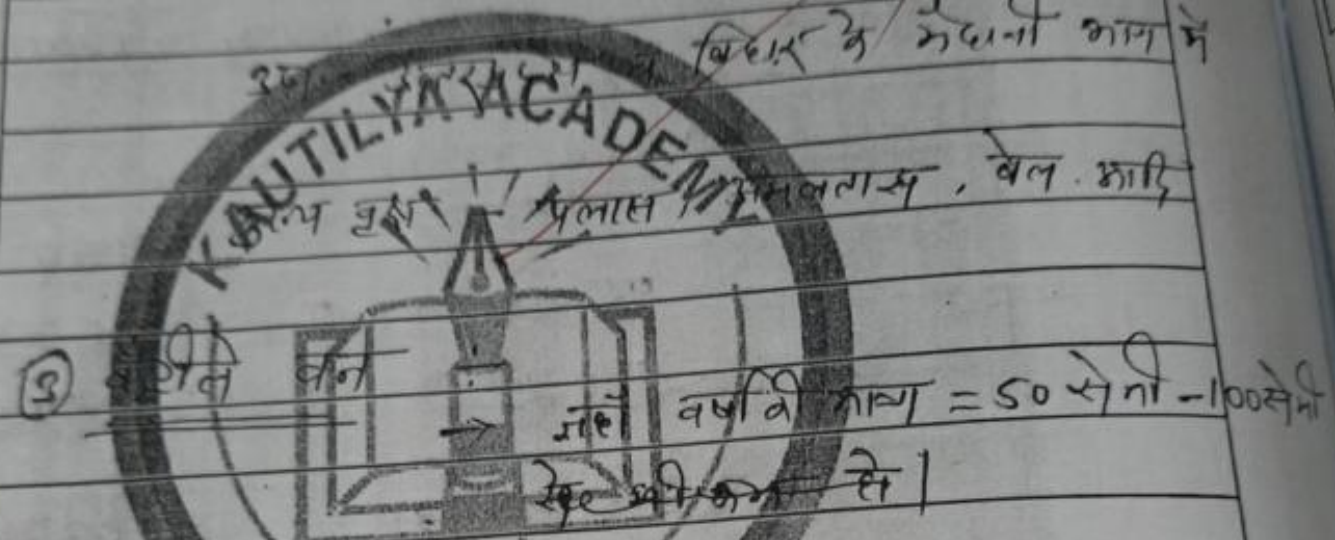 बिहार के मैदानी भाग में
KAUTILYA ACADEMY
अन्य वृक्ष पलास, अमलतास, बेल आदि
③ कटीले वन
→ जहाँ वर्षा की मात्रा = 50 सेमी - 100 सेमी
है।